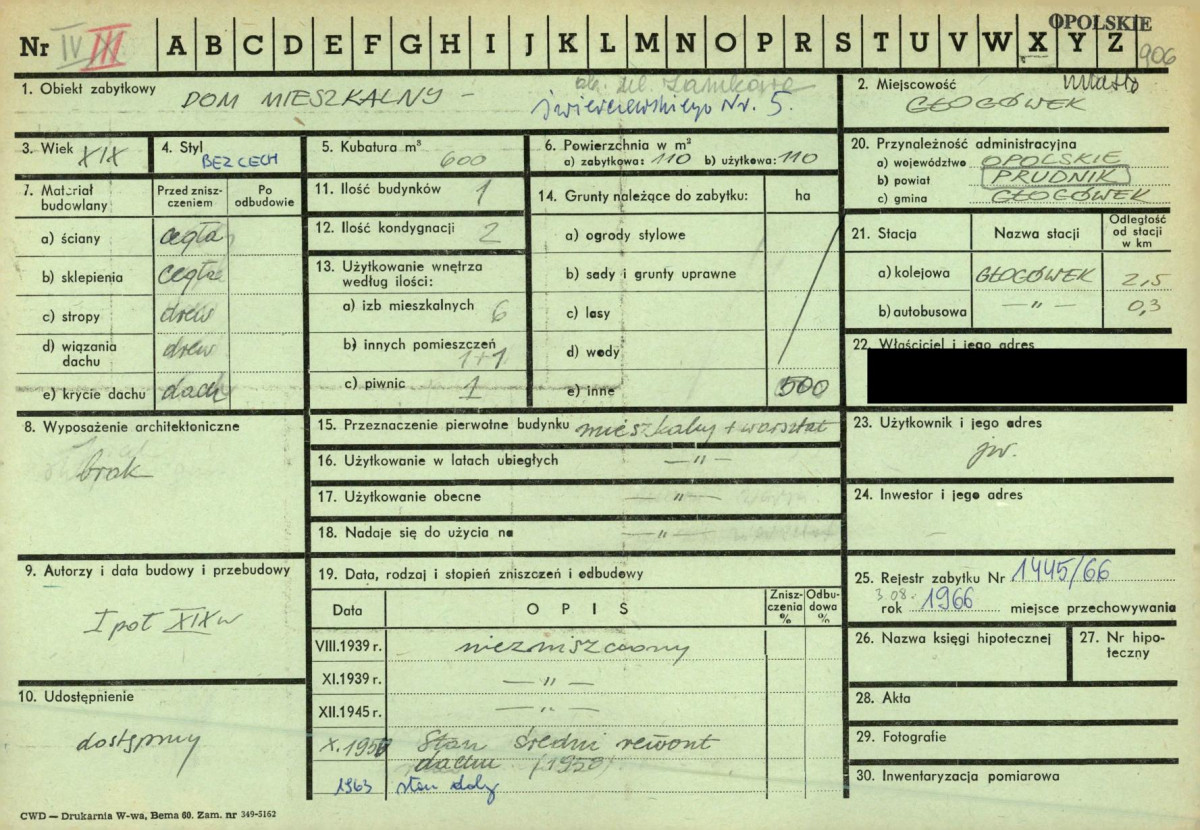 OPOLSKIE
Nr IV III A B C D E F G H I J K L M N O P R S T U V W X Y Z 906
1. Obiekt zabytkowy DOM MIESZKALNY – ob. ul. Zamkowa
Świerczewskiego Nr. 5.
2. Miejscowość miasto
GŁOGÓWEK
3. Wiek XIX
4. Styl BEZ CECH
5. Kubatura m³ 600
6. Powierzchnia w m²
a) zabytkowa: 110 b) użytkowa: 110
20. Przynależność administracyjna
a) województwo OPOLSKIE
b) powiat PRUDNIK
c) gmina GŁOGÓWEK
7. Materiał budowlany
Przed zniszczeniem
Po odbudowie
a) ściany cegła
b) sklepienia cegła
c) stropy drew
d) wiązania dachu drew
e) krycie dachu dach
11. Ilość budynków 1
12. Ilość kondygnacji 2
13. Użytkowanie wnętrza
według ilości:
a) izb mieszkalnych 6
b) innych pomieszczeń 1+1
c) piwnic 1
14. Grunty należące do zabytku: ha
a) ogrody stylowe
b) sady i grunty uprawne
c) lasy
d) wody
e) inne 500
21. Stacja Nazwa stacji Odległość od stacji w km
a) kolejowa GŁOGÓWEK 2,5
b) autobusowa —„— 0,3
22. Właściciel i jego adres
8. Wyposażenie architektoniczne
brak
15. Przeznaczenie pierwotne budynku mieszkalny + warsztat
16. Użytkowanie w latach ubiegłych —„—
17. Użytkowanie obecne —„—
18. Nadaje się do użycia na —„—
23. Użytkownik i jego adres
jw.
24. Inwestor i jego adres
9. Autorzy i data budowy i przebudowy
I poł XIX w
10. Udostępnienie
dostępny
19. Data, rodzaj i stopień zniszczeń i odbudowy
Data OPIS Zniszczenia % Odbudowa %
VIII.1939 r. niezniszczony
XI.1939 r. —„—
XII.1945 r. —„—
X.1957 Stan średni remont
dachu (1950)
1963 stan dobry
25. Rejestr zabytku Nr 1445/66
3.08.
rok 1966 miejsce przechowywania
26. Nazwa księgi hipotecznej
27. Nr hipoteczny
28. Akta
29. Fotografie
30. Inwentaryzacja pomiarowa
CWD — Drukarnia W-wa, Bema 60. Zam. nr 349-5162